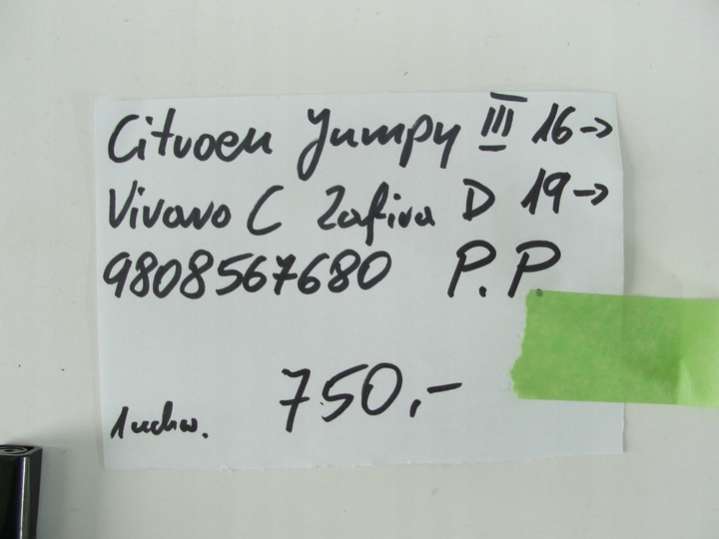 Citroen Jumpy III 16→
Vivaro C Zafira D 19→
9808567680 P.P
750,-
1 uchw.